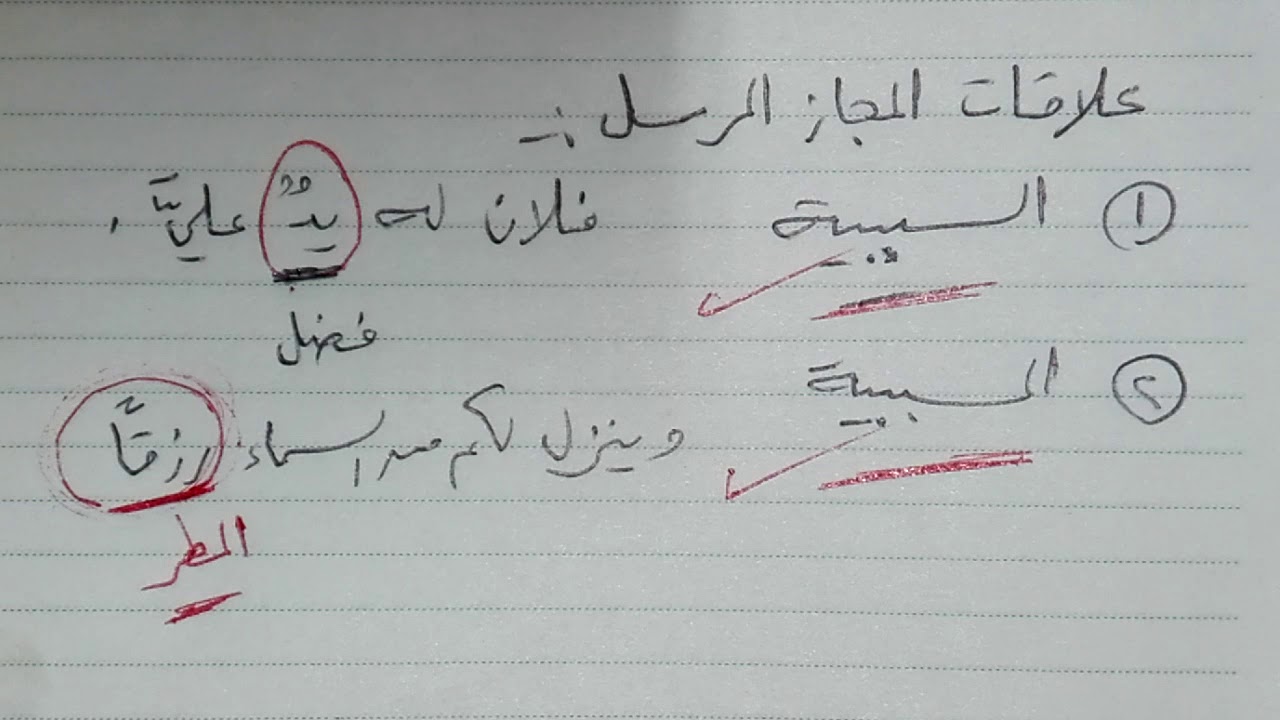 علاقات المجاز المرسل :ـ
① السببية فلان له يدٌ عليَّ .
فضل
② المسببية وينزل لكم من السماء رزقاً
المطر